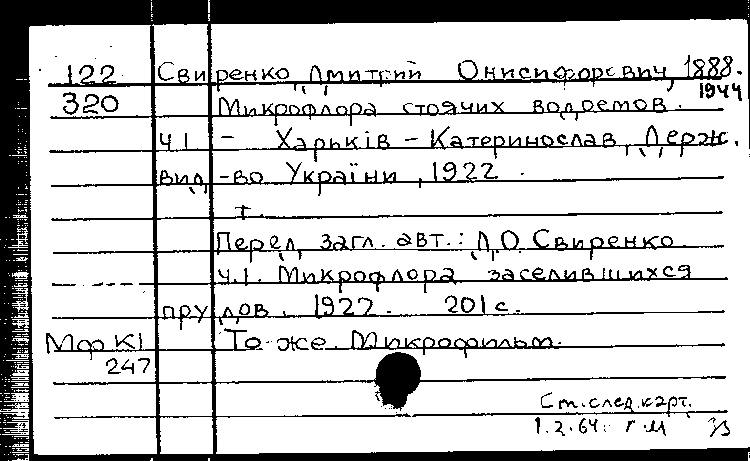 122 Свиренко, Дмитрий Онисифорович, 1888.
1944
320 Микрофлора стоячих водоемов.
Ч.I – Харьків – Катеринослав, Держ.
вид-во України, 1922.
т.
Перед загл. авт.: Д.О. Свиренко
Ч.I. Микрофлора заселившихся
прудов. 1922. 201 с.
МфKI То же. Микрофильм.
247
См. след. карт.
1.2.64. г м